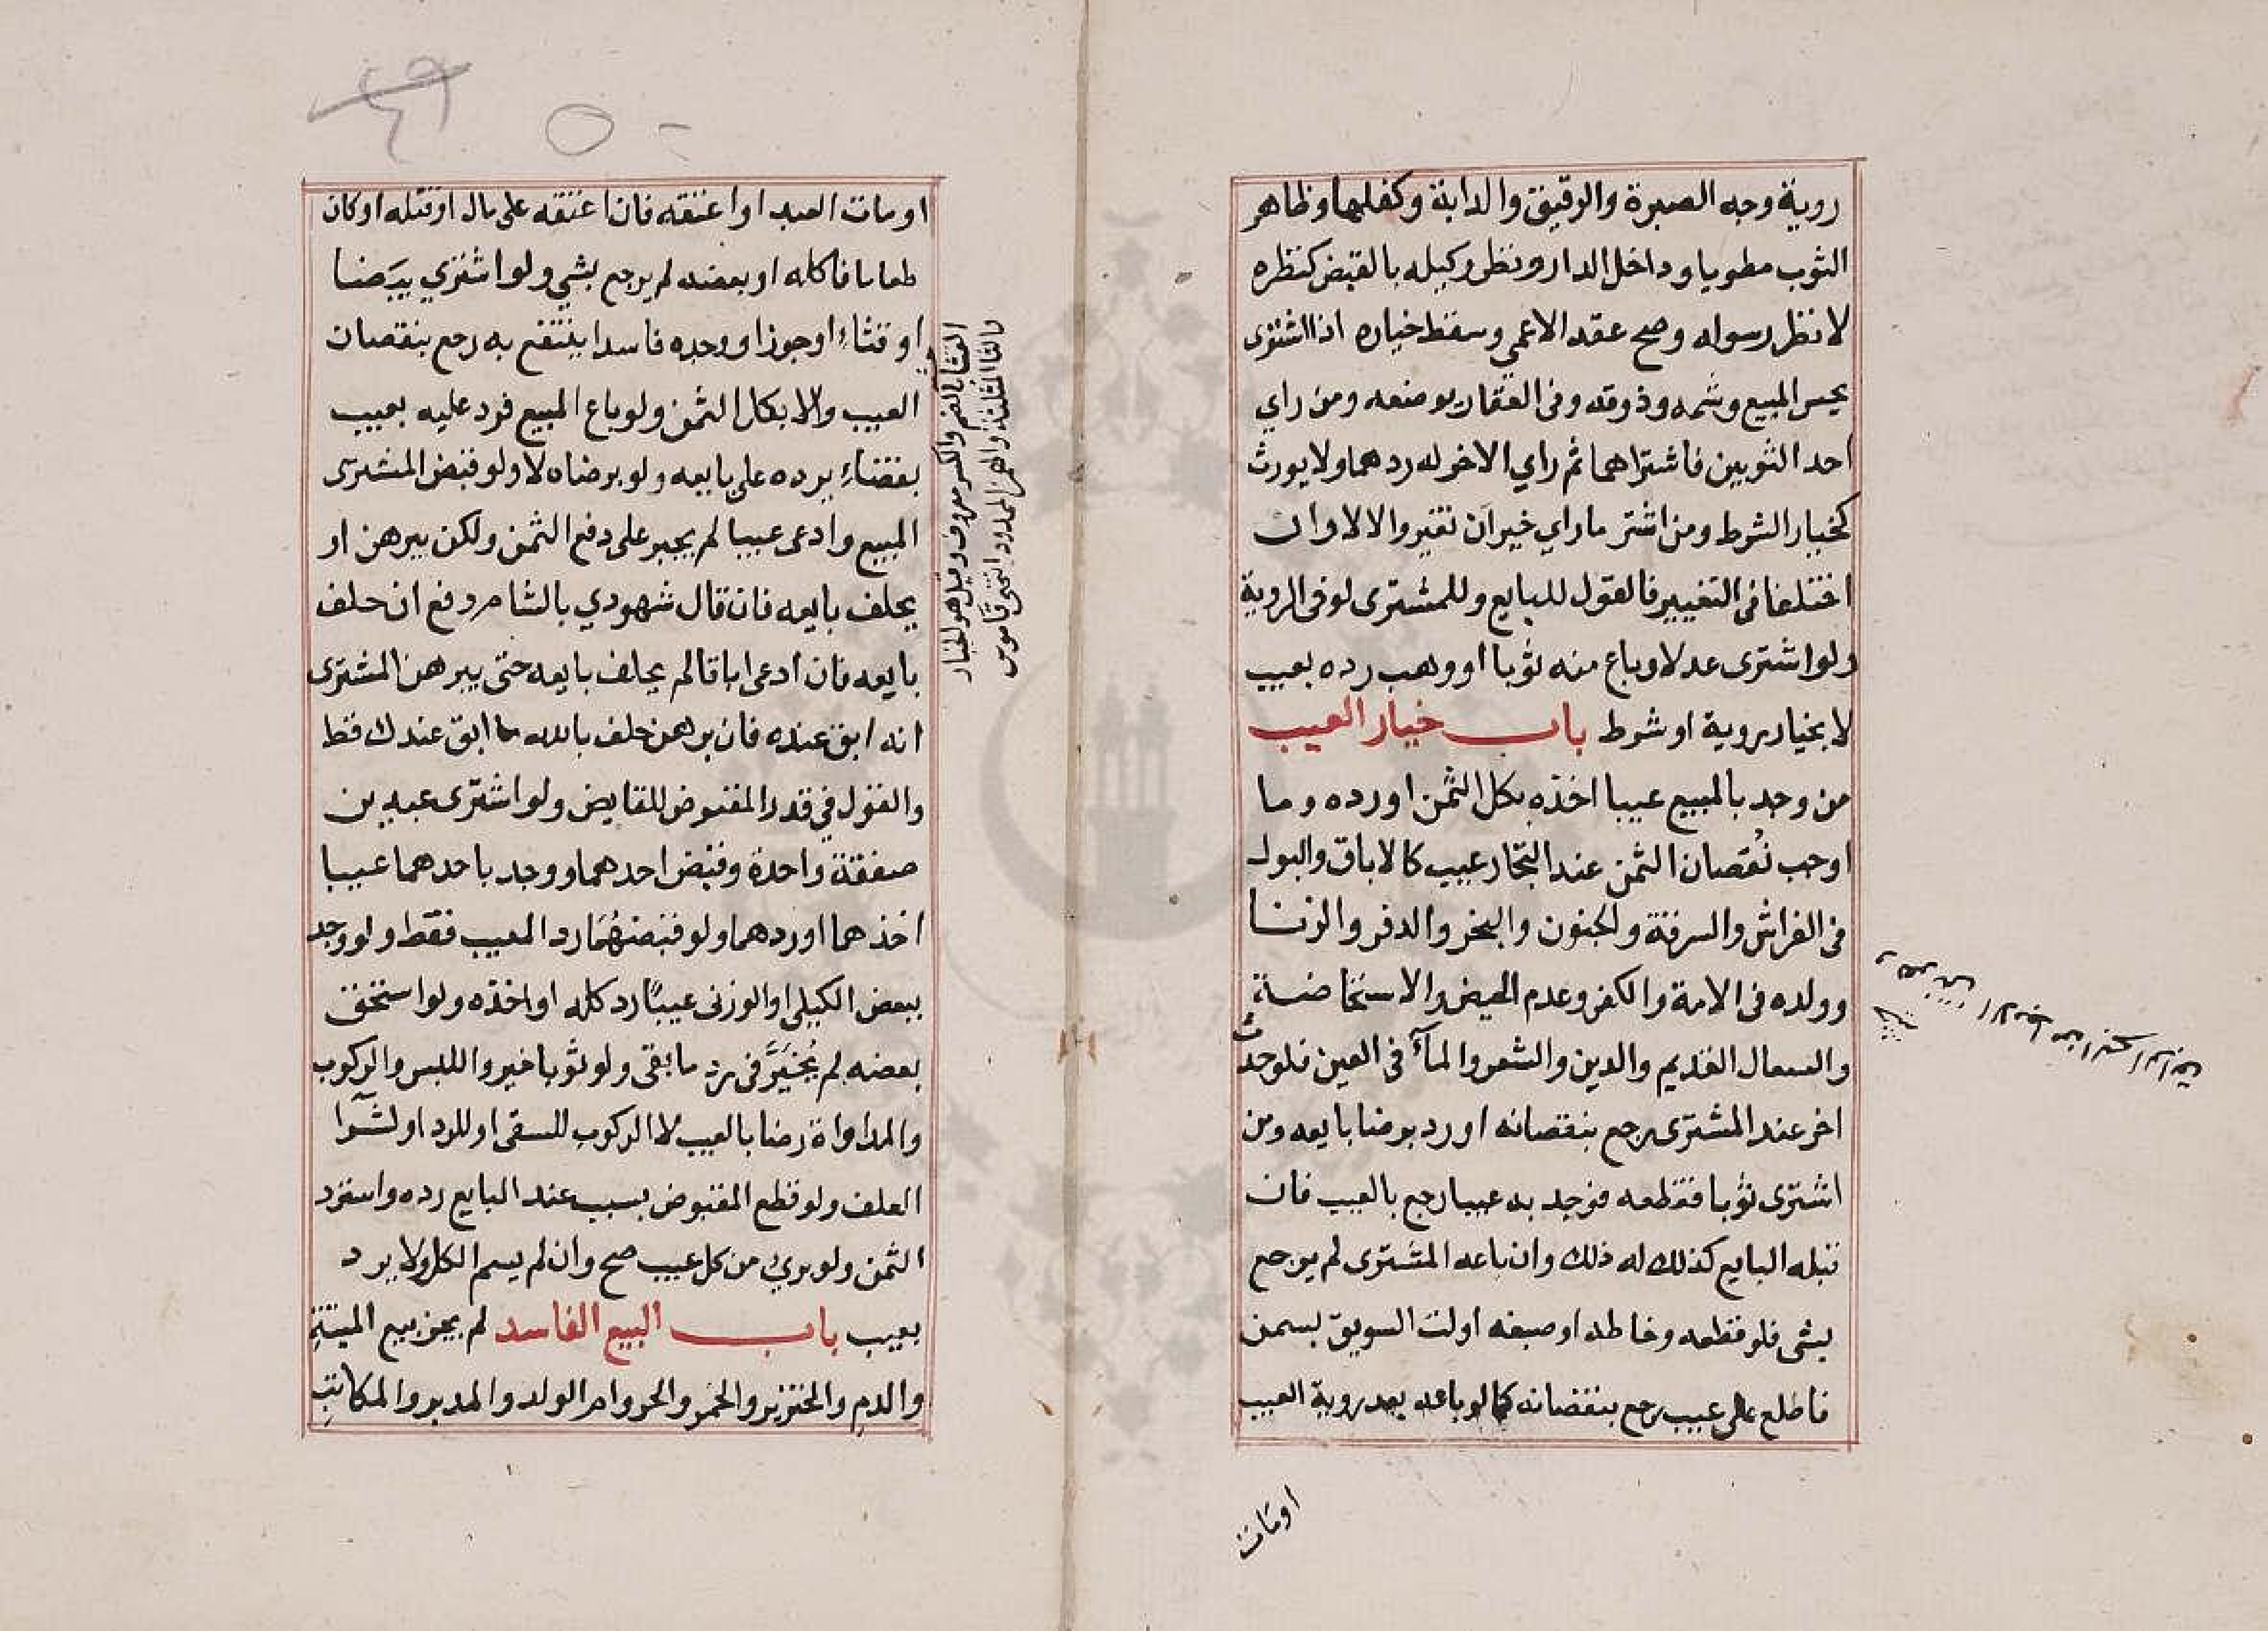 روية وجه الصبرة والرقيق والدابة وكفلهما وظاهر
الثوب مطويا وداخل الدار ونظر وكيله بالقبض كنظره
لا نظر رسوله وصح عقد الاعمي وسقط خياره اذا اشترى
بجس المبيع وشمه وذوقه وفى العقار بوصفه ومن راي
احد الثوبين فاشتراهما ثم راي الاخر له ردهما ولا يورث
كخيار الشرط ومن اشتر ما راي خير ان تغير والا لا وان
اختلفا فى التغيير فالقول للبايع وللمشترى لو فى الروية
ولو اشترى عدلا وباع منه ثوبا او وهب رده بعيب
لا بخيار روية او شرط باب خيار العيب
من وجد بالمبيع عيبا اخذه بكل الثمن او رده وما
اوجب نقصان الثمن عند التجار عيب كالاباق والبول
فى الفراش والسرقة والجنون والبخر والدفر والزنا
وولده فى الامة والكفر وعدم الحيض والاستحاضة
والسعال القديم والدين والشعر والمآء فى العين فلو حدث
اخر عند المشترى رجع بنقصانه او رد برضا بايعه ومن
اشترى ثوبا فقطعه فوجد به عيبا رجع بالعيب فان
قبله البايع كذلك له ذلك وان باعه المشترى لم يرجع
بشى فلو قطعه وخاطه او صبغه او لت السويق بسمن
فاطلع على عيب رجع بنقصانه كما لو باعه بعد روية العيب
او مات
او مات العبد او اعتقه فان اعتقه على مال او قتله او كان
طعاما فاكله او بعضه لم يرجع بشي ولو اشتري بيضا
او قثاء او جوزا ووجده فاسدا ينتفع به رجع بنقصان
العيب والا بكل الثمن ولو باع المبيع فرد عليه بعيب
بقضاء يرده على بايعه ولو برضاه لا ولو قبض المشترى
المبيع وادعى عيبا لم يجبر على دفع الثمن ولكن يبرهن او
يحلف بايعه فان قال شهودي بالشام دفع ان حلف
بايعه فان ادعى اباقا لم يحلف بايعه حتى يبرهن المشترى
انه ابق عنده فان برهن حلف بالله ما ابق عندك قط
والقول في قدر المقبوض للقابض ولو اشترى عبدين
صفقة واحدة وقبض احدهما ووجد باحدهما عيبا
اخذهما او ردهما ولو قبضهما رد المعيب فقط ولو وجد
ببعض الكيلى او الوزنى عيبا رد كله او اخذه ولو استحق
بعضه لم يخير فى رد ما بقى ولو ثوبا خير واللبس والركوب
والمداواة رضا بالعيب لا الركوب للسقى او للرد او لشرا
العلف ولو قطع المقبوض بسبب عند البايع رده واسترد
الثمن ولو برئ من كل عيب صح وان لم يسم الكل ولا يرد
بعيب باب البيع الفاسد لم يجز بيع الميتة
والدم والخنزير والخمر والحر وام الولد والمدبر والمكاتب
القثاء بالضم والكسر معروف وقيل هو الخيار